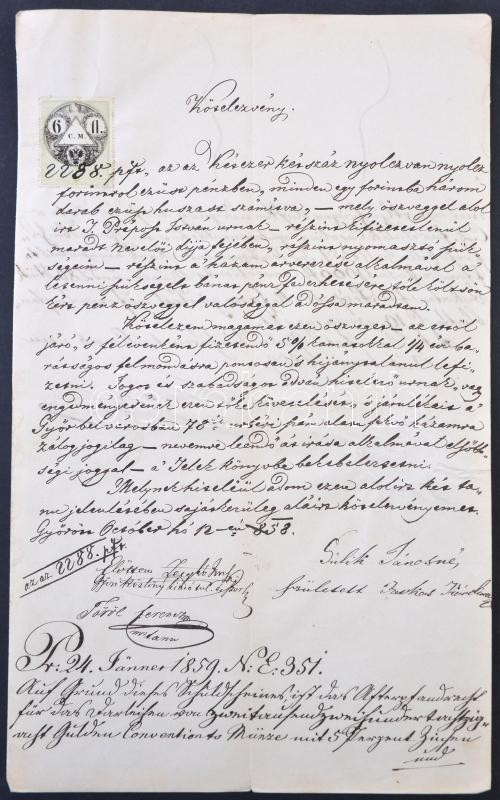 Kötelezvény.
6 fl.
C. M.
2288. pfr, az az Kétezer kétszáz nyolczvan nyolcz
forintról ezüst pénzben, minden egy forintba három
darab ezüst huszast számítva, – mely öszveggel alól
írt I. Prépost István urnak – részint kifizetetlenül
maradt nevelői díja fejében, részint nyomasztó szük-
ségeim – részint a házam árverezése alkalmával a
letenni szükségelt bánat pénz fedezhetésére tőle kölcsön
kért pénz öszveggel valósággal adóssa maradtam.
Kötelezem magamat ezen öszveget – az ettől
járó, s félévenként fizetendő 5% kamatokkal 1/4 évi ba-
rátságos felmondásra pontosan s hijánytalanul lefi-
zetni. Jogot és szabadságot adván hitelező urnak, vagy
engedményesének ezen tőke követelését, s járulékait a
Győr bel városban 78 szám alatt fekvő házamra
zálogjogilag – nevemre leendő átirása alkalmával elsőbb-
ségi joggal – a Telek könyvbe bekebeleztetni.
Melynek hiteléül adom ezen alólírt két ta-
nu jelenlétében sajátkezüleg aláírt kötelezvényemet.
Győrött October hó 12-én 1858.
az az 2288. pfr.
Előttem
Gulik Jánosné,
született
Ferencz
mt tanu
Pr: 24. Jänner 1859. N: E: 351.
Auf Grund dieses Schuldscheines ist das Afterpfandrecht
für das Darleihen von zweitausendzweihundertachtzig-
acht Gulden Conventions Münze mit 5 Perzent Zinsen
und